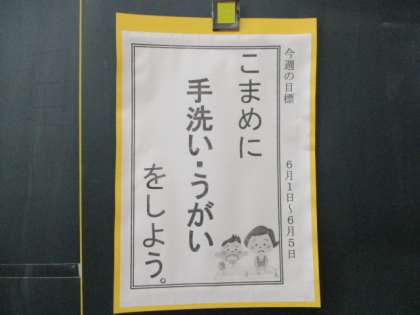 今週の目標　６月１日～６月５日
こまめに
手洗い・うがい
をしよう。